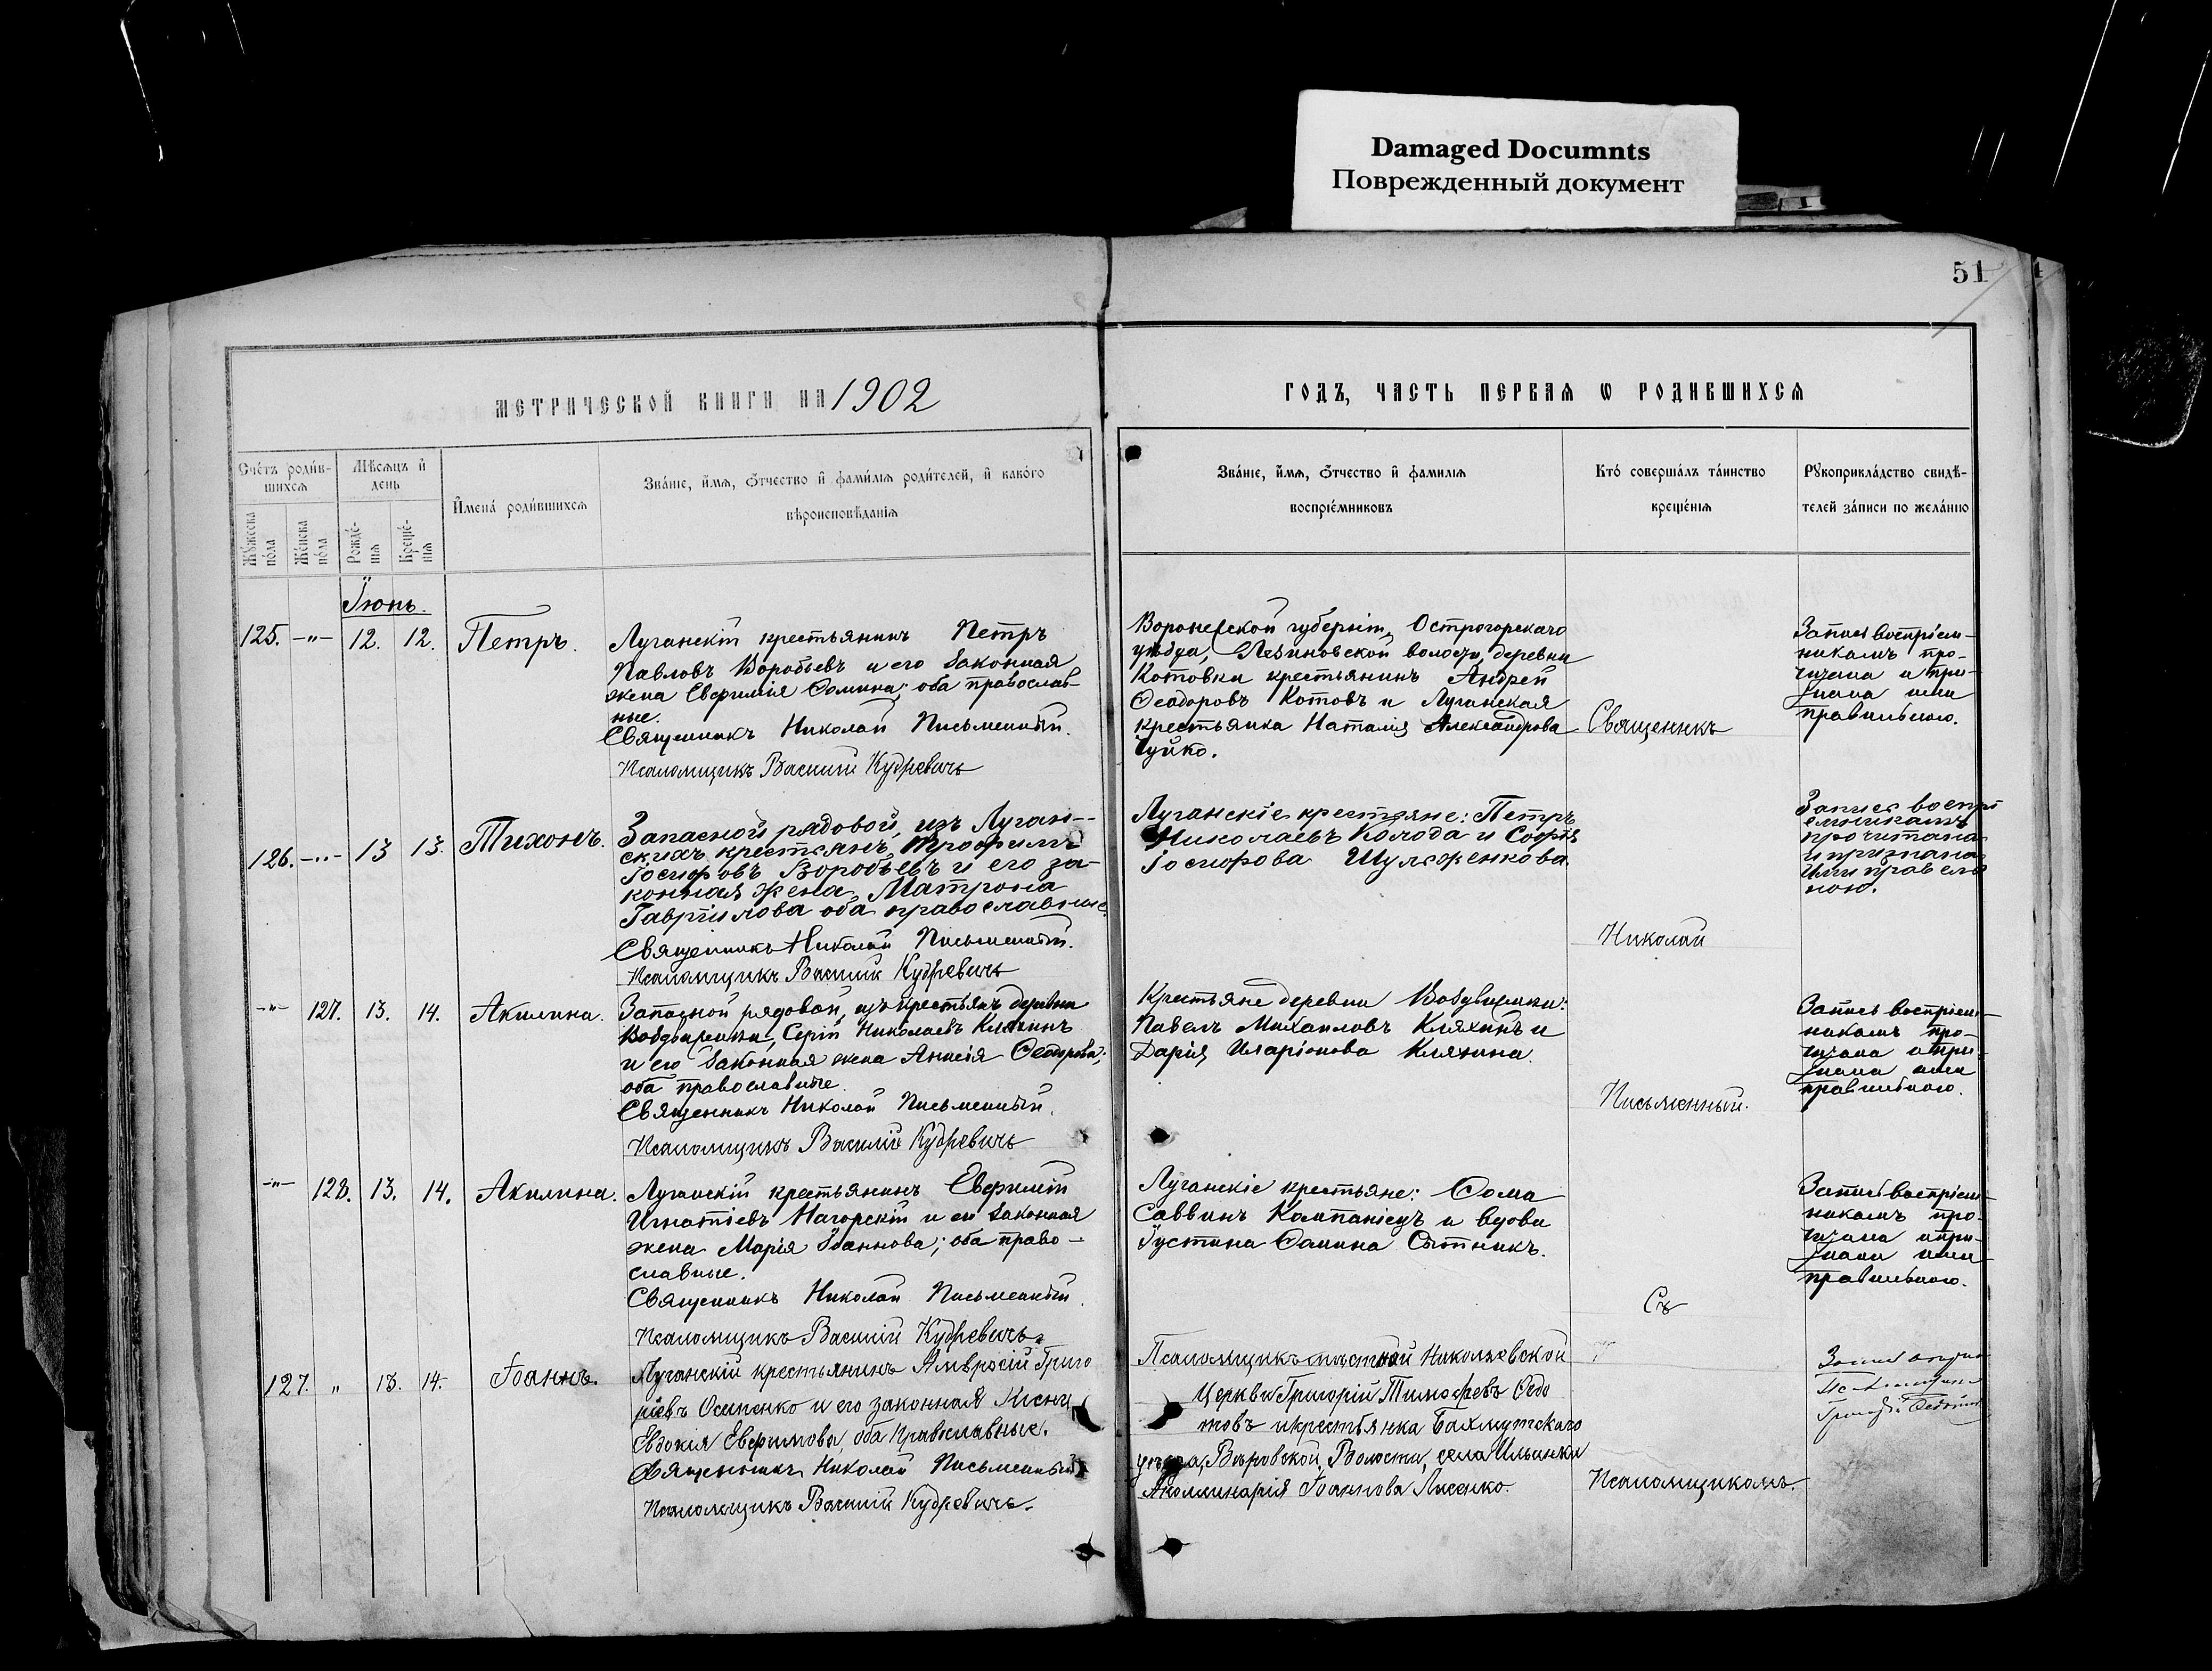 Damaged Documnts
Поврежденный документ
51
МЕТРИЧЕСКОЙ КНИГИ НА 1902
ГОДЪ, ЧАСТЬ ПЕРВАЯ Ѡ РОДИВШИХСЯ
Счетъ родив-
шихся
Мѣсяцъ и
день
Мужеска
пола
Женска
пола
Рожде-
нія
Креще-
нія
Имена родившихся
Званіе, имя, отчество и фамилія родителей, и какого
вѣроисповѣданія
Званіе, имя, отчество и фамилія
воспріемниковъ
Кто совершалъ таинство
крещенія
Рукоприкладство свидѣ-
телей записи по желанію
Іюнь.
125. -"- 12. 12. Петръ.
Луганскій крестьянинъ Петръ
Павловъ Воробьевъ и его законная
жена Евфимія Ѳомина; оба православ-
ные.
Священникъ Николай Письменный.
Псаломщикъ Василій Кудревичъ
Воронежской губерніи, Острогорскаго
уѣзда, волости, деревни
Котовки крестьянинъ Андрей
Ѳеодоровъ Котовъ и Луганская
крестьянка Наталія Александрова
Чуйко.
Священникъ
Запись воспріем-
никамъ про-
читана и при-
знана ими
правильною.
126. -"- 13 13. Тихонъ.
Запасной рядовой, изъ Луган-
скихъ крестьянъ, Трофимъ
Іосифовъ Воробьевъ и его за-
конная жена Матрона
Гавріилова оба православные.
Священникъ Николай Письменный.
Псаломщикъ Василій Кудревичъ
Луганскіе крестьяне: Петръ
Николаевъ Колода и Софія
Іосифова Шульженкова.
Николай
Запись воспрі
емникамъ
прочитана
и признана
ими правиль
ною.
-"- 127. 13. 14. Акилина.
Запасной рядовой, изъ крестьянъ деревни
Воздвиженки, Сергій Николаевъ Кляхинъ
и его законная жена Анисія Ѳеодорова;
оба православные.
Священникъ Николай Письменный.
Псаломщикъ Василій Кудревичъ
Крестьяне деревни Воздвиженки:
Павелъ Михаиловъ Кляхинъ и
Дарія Иларіонова Кляхина.
Письменный.
Запись воспріем-
никамъ про-
читана и при-
знана ими
правильною.
-"- 128. 13. 14. Акилина.
Луганскій крестьянинъ Евфимій
Игнатіевъ Нагорскій и его законная
жена Марія Іоаннова; оба право-
славные.
Священникъ Николай Письменный
Псаломщикъ Василій Кудревичъ.
Луганскіе крестьяне: Ѳома
Саввинъ Компаніецъ и вдова
Іустина Сытникъ.
Съ
Запись воспріем-
никамъ про-
читана и при-
знана ими
правильною.
127. " 13. 14. Іоаннъ.
Луганскій крестьянинъ Амвросій Григо
ріевъ Осипенко и его законная жена
Евдокія Евфимова, оба Православные.
Священникъ Николай Письменный
Псаломщикъ Василій Кудревичъ.
Псаломщикъ мѣстной Николаевской
Церкви Григорій Тимофеевъ Ѳедо
товъ и крестьянка Бахмутскаго
уѣзда, Волости, села Ильинки
Аполлинарія Іоаннова Лисенко.
Псаломщикомъ.